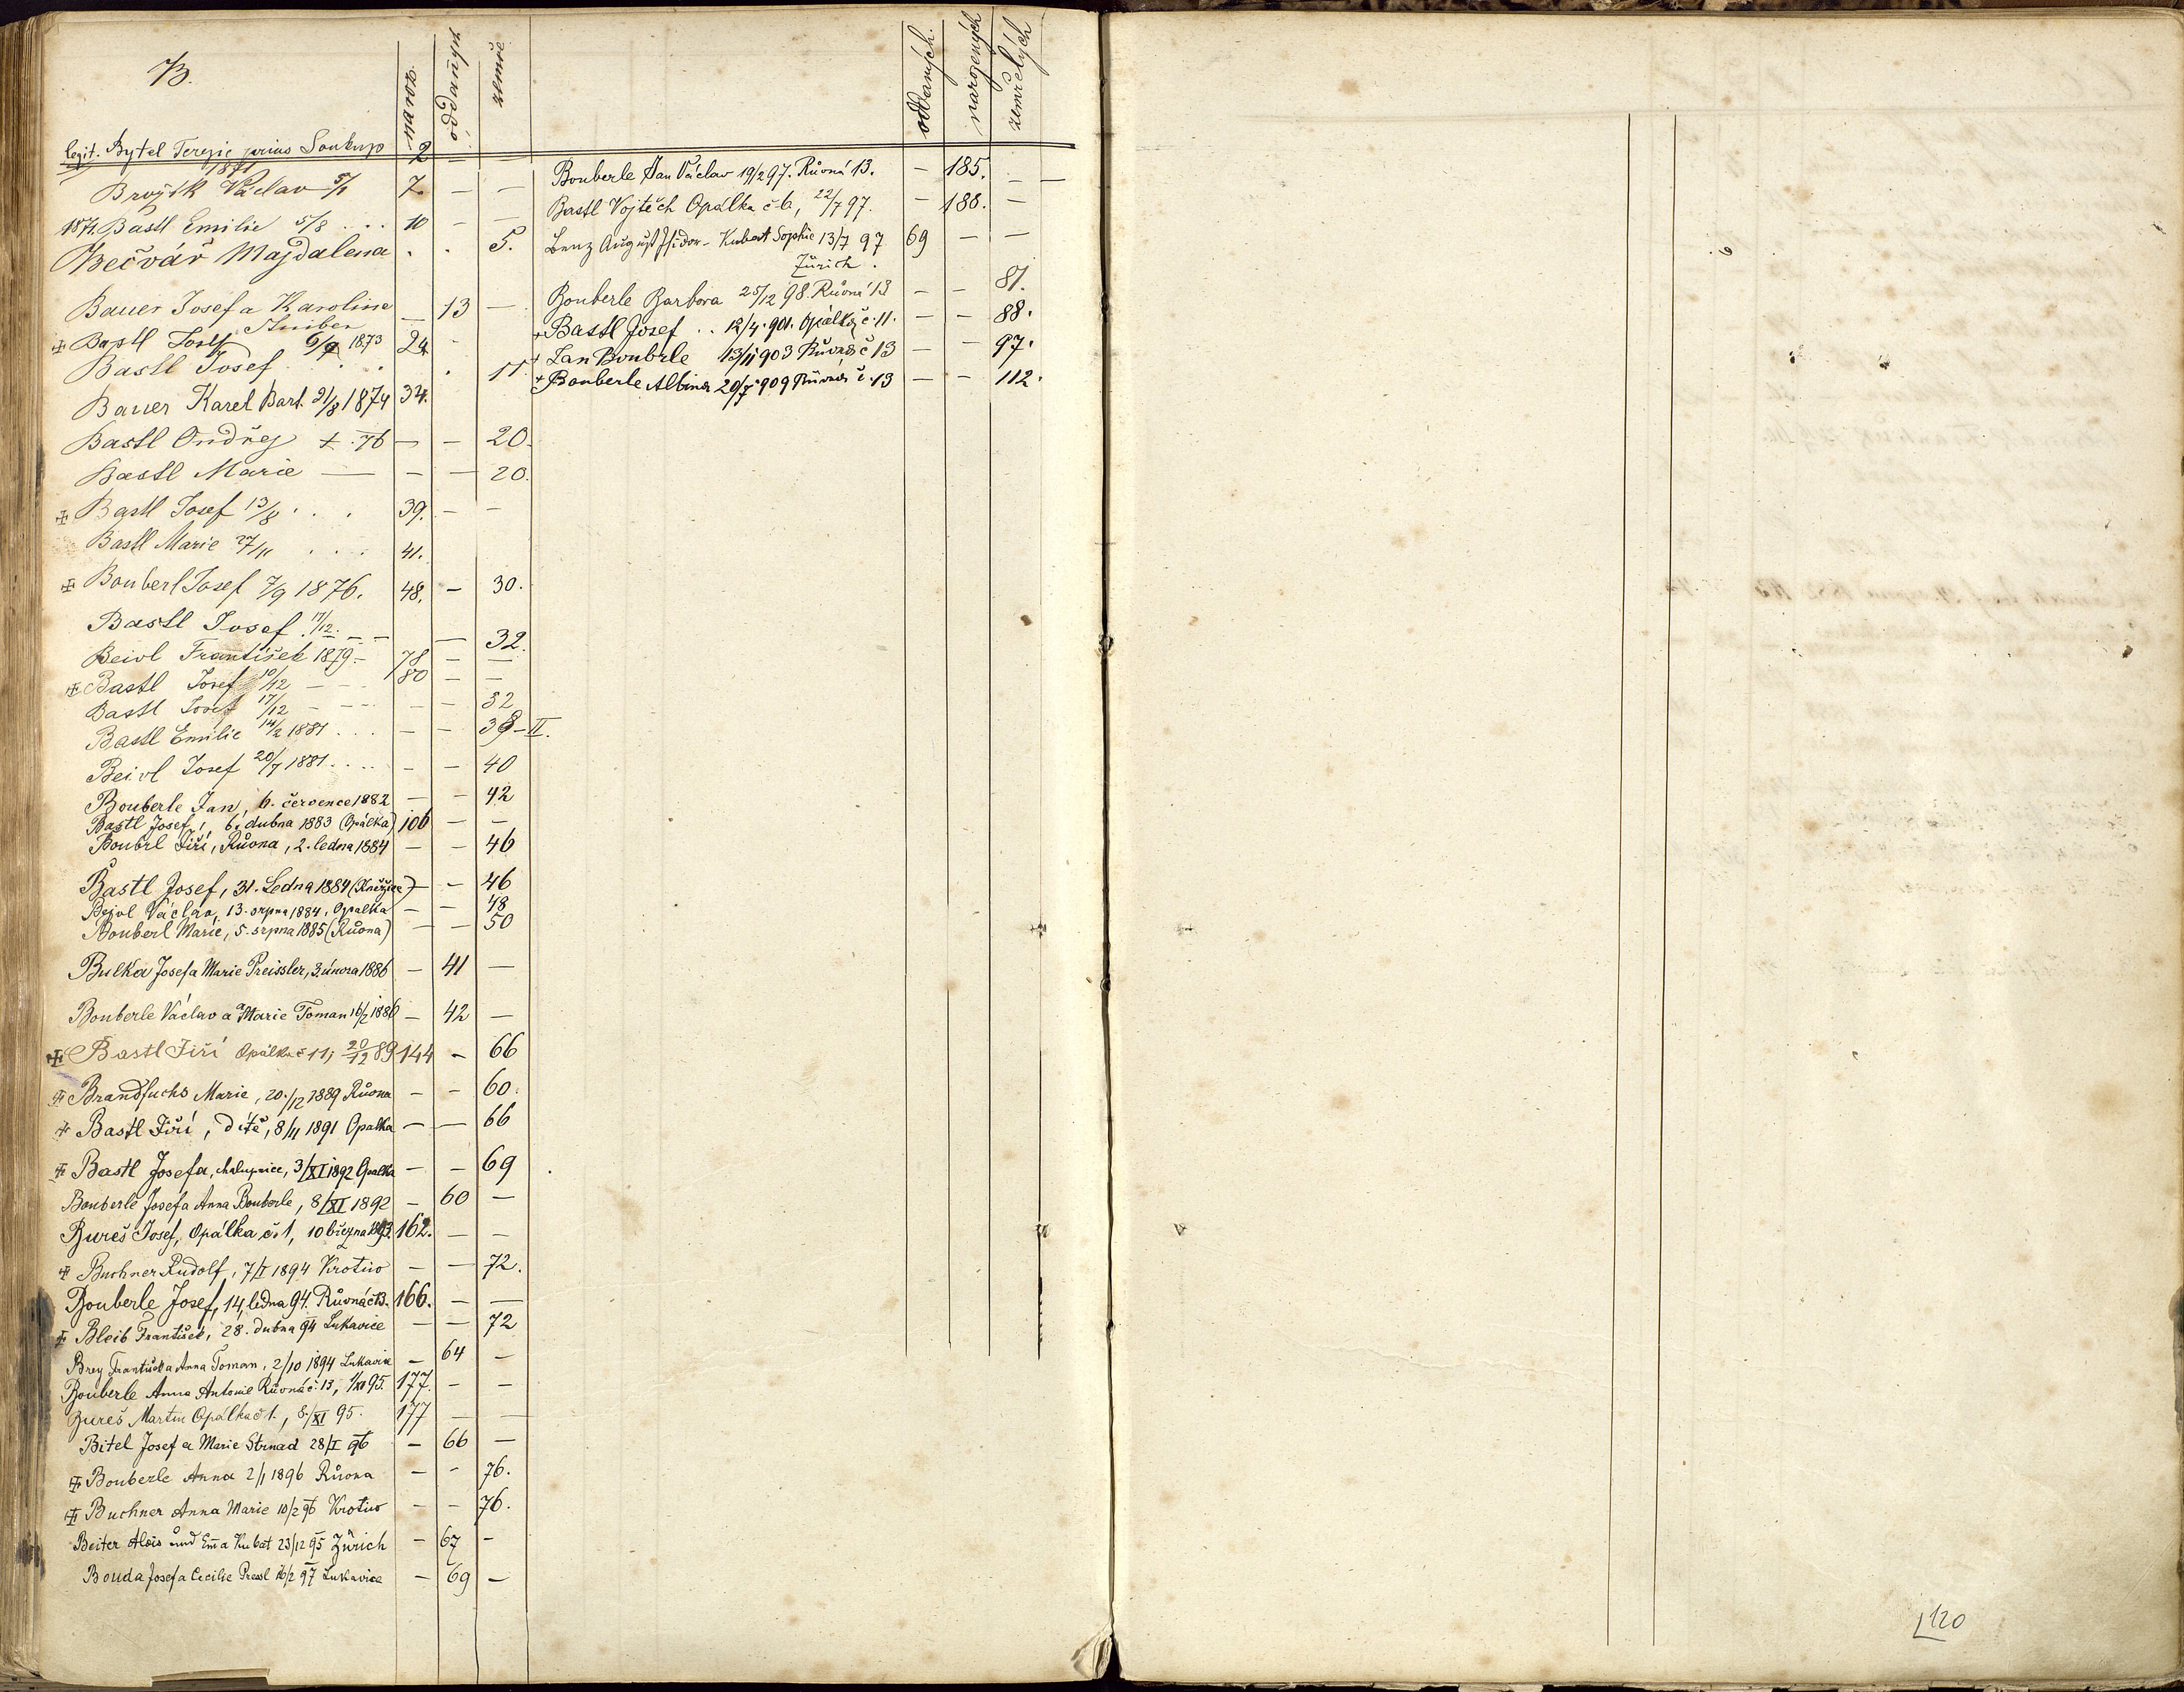 B.
naroz. oddaných zemře
legit. Bytel Terezie prius Soukup 2 — —
1871
Brojík Václav 5/1 7. — —
1872. Bastl Emilie 5/8 . . . 10 — —
Bečvář Magdalena . . 5.
Bauer Josef a Karolina — 13 —
Stuiber
✠ Bastl Josef 6/9 1873 24 -
Bastl Josef . . . . 11
Bauer Karel Bart. 21/8 1874 34.
Bastl Ondřej +. 76 — — 20.
Bastl Marie — — — 20.
✠ Bastl Josef 13/8 . . . 39. — —
Bastl Marie 27/11 . . . . 41.
✠ Bouberl Josef 7/9 1876. 48. — 30.
Bastl Josef 17/12. — — — 32.
Beivl František 1879 - 78 — —
✠ Bastl Josef 10/12 — — 80 — —
Bastl Josef 17/12 — — — — 32
Bastl Emilie 14/2 1881 . . . — — 38-II.
Beivl Josef 20/7 1881 . . . . - — 40
Bouberle Jan, 6. července 1882 — - 42
Bastl Josef, 6. dubna 1883 (Opálka) 106 — —
Boubrl Jiří, Růvna, 2. ledna 1884 — — 46
Bastl Josef, 31. Ledna 1884 — - 46
Bejvl Václav, 13. srpna 1884, Opalka — — 48
Bouberl Marie, 5. srpna 1885 (Růvna) — — 50
Bulka Josef a Marie Preissler, 3. února 1886 — 41 —
Bouberle Václav a Marie Toman 16/2 1886 — 42 —
✠ Bastl Jiří Opálka č 11, 20/12 89 144 - 66
✠ Brandfuchs Marie, 20./12 1889 Růvna — — 60.
+ Bastl Jiří, dítě, 8/II 1891 Opalka — — 66
✠ Bastl Josefa, chalupnice, 3/XI 1892 Opalka — — 69
Bouberle Josef a Anna Bouberle, 8/XI 1892 — 60 —
Bureš Josef, Opálka č. 1, 10 března 1893. 162. — —
✠ Buchner Rudolf, 7/I 1894 Krotiv — — 72.
Bouberle Josef, 14. ledna 94. Růvná č 13. 166. — —
✠ Bleib František, 28. dubna 94 Lukavice — — 72
Brey František a Anna Toman, 2/10 1894 Lukavice — 64 —
Bouberle Anna Antonie Růvná č. 13, 1/XI 95. 177. — —
Bureš Martin Opálka č 1., 8./XI 95. 177 — —
Bitel Josef a Marie Strnad 28/I 96 — 66 —
✠ Bouberle Anna 2/1 1896 Růvna — - 76.
✠ Buchner Anna Marie 10/2 96 Krotiv — — 76.
Beiter Alois und Ema Kubat 23/12 95 Zürich — 67 -
Bouda Josef a Cecilie 16/2 97 Lukavice — 69 —
oddaných. narozených zemřelých
Bouberle Jan Václav 19/2 97. Růvná 13. — 185. —
Bastl Vojtěch Opálka č 6, 22/7 97. — 188. —
Benz August Isidor - Kubat Sophie 13/7 97 69 — —
Zürich.
Bouberle Barbora 25/12 98. Růvná 13 — — 81.
+ Bastl Josef . . 12/4. 901. Opálka č. 11. — — 88.
+ Jan Boubrle 13/11 903 Růvná č 13 — — 97.
+ Bouberle Albina 20/7 909 Růvná č. 13 — — 112.
120